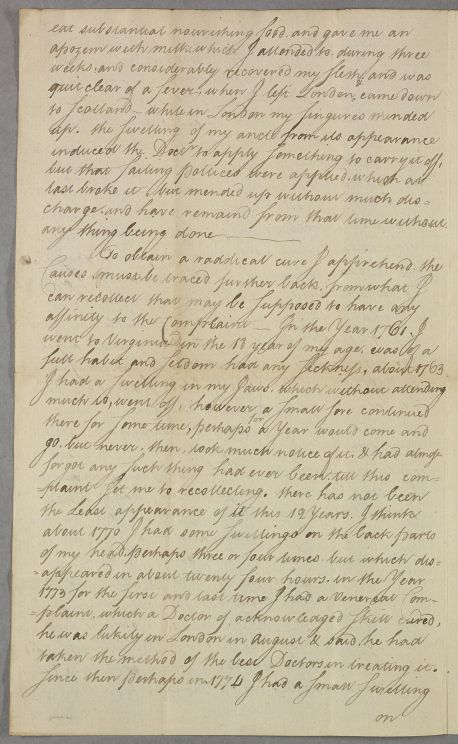 eat substantial nourishing food, and gave me an
apozem with milk which I attended to during three
weeks, and considerably recovered my flesh, and was
quit clear of a fever, when I left London, & came down
to Scotland — while in London my fingures mended
up. the swelling of my ancle from its appearance
induced the Docr. to apply something to carry it off,
but that failing poltices were applied which at
last broke it but mended up without much dis=
charge. and have remained from that time without
any thing being done
To obtain a raddical cure I apprehend the
Causes must be traced further back, from what I
can recollect that may be supposed to have any
affinity to the Complaint — In the Year 1761. I
went to Virginia in the 18 year of my age. was of a
full habit and seldom had any sickness, about 1763
I had a swelling in my Jaws. which without attending
much to, went off, however a small sore continued
there for some time, perhaps for a Year would come and
go. but never, then, took much notice of it. & had almost
forgot any such thing had ever been till this com=
=plaint set me to recollecting. there has not been
the Least appearance of it this 12 Years. I think
about 1770 I had some swellings on the back parts
of my head. perhaps three or four times. but which dis=
=appeared in about twenty four hours. in the Year
1773 for the first and last time I had a Venereal Com=
=plaint. which a Doctor of acknowledged skill cured,
he was likely in London in August & said he had
taken the method of the best Doctors in treating it.
Since then perhaps in 1774 I had a small swelling
on